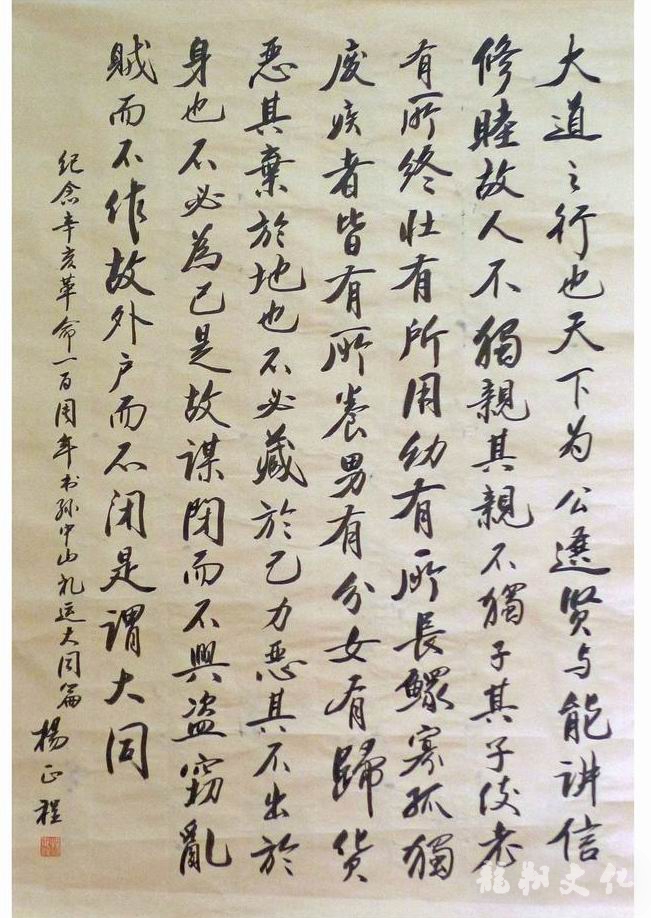 大道之行也天下为公選贤与能讲信
修睦故人不獨親其親不獨子其子使老
有所终壮有所用幼有所長鰥寡孤獨
废疾者皆有所养男有分女有歸货
恶其棄於地也不必藏於己力恶其不出於
身也不必為己是故謀閉而不興盗窃亂
贼而不作故外户而不闭是謂大同
纪念辛亥革命一百周年书孙中山礼运大同篇
楊正程
文化